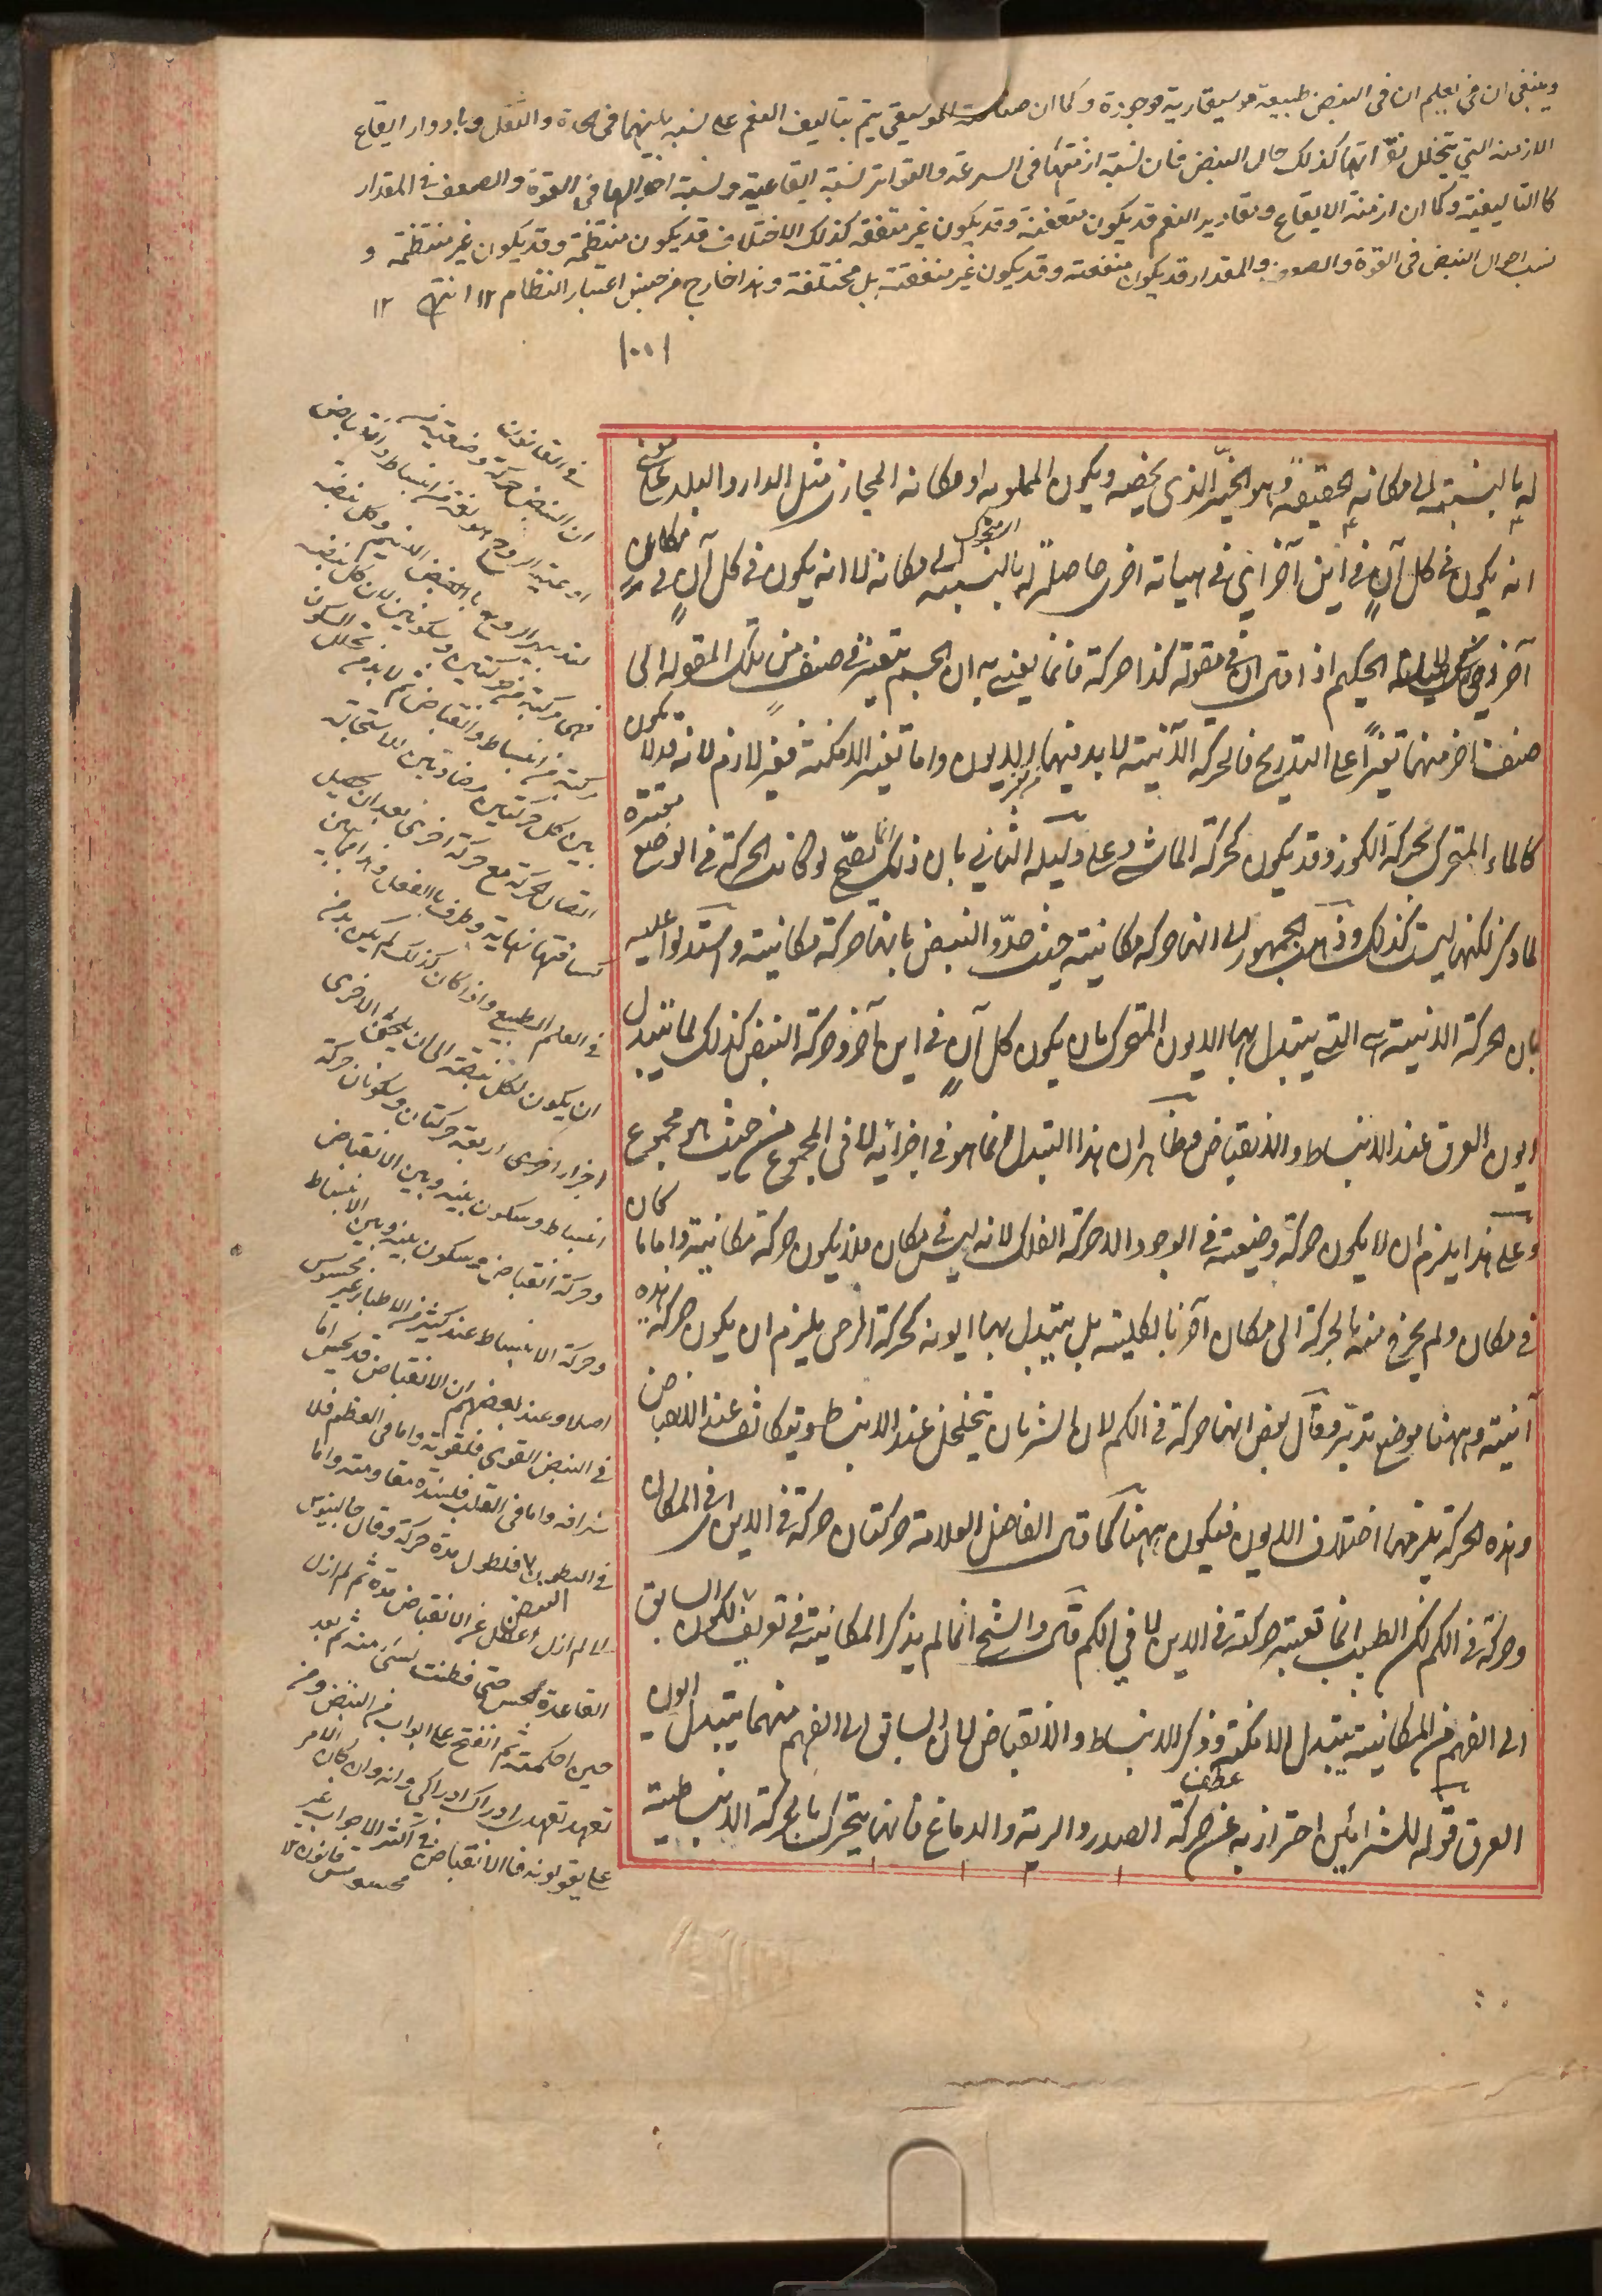 وينبغى ان يعلم ان فى النبض طبيعة موسيقارية موجودة وكما ان صناعة الموسيقى يتم بتاليف النغم على نسبة بينهما فى الحدة والثقل وبادوار ايقاع
الازمنة التي يتخلل نقراتها كذلك حال النبض فان نسبة ازمنتها فى السرعة والتواتر نسبة ايقاعية ونسبة احوالها فى القوة والضعف فى المقدار
كالتاليفية وكما ان ازمنة الايقاع ومقادير النغم قد يكون متفقة وقد يكون غير متفقة كذلك الاختلاف قد يكون منتظمة وقد يكون غير منتظمة و
نسب احوال النبض فى القوة والضعف والمقدار قد يكون متفقة وقد يكون غير متفقة بل مختلفة وهذا خارج من جنس اعتبار النظام ١٢ انتهى ١٢
له بالنسبة الى مكانه الحقيقة وهو الحيّز الذى يخصه ويكون المملو به او مكانه المجازى مثل الدار والبلد على معنى
انه يكون فى كل آن فى اين آخر اي فى هيأته اخرى حاصلة له بالنسبة الى مكانه لا انه يكون فى كل آن فى مكان
آخر الحكيم اذا قال ان فى مقولة كذا حركة فانما يعنى به ان الجسم يتغير فى صنف من تلك المقولة الى
صنف اخر منها تغيرًا على التدريج فالحركة الآنية لا بد فيها من تغير الايون واما تغير الامكنة فغير لازم لانه قد لا يكون
كالماء المتحرك بحركة الكوز وقد يكون كحركة الماشى وعلى دليله الثاني بان ذلك انما يصح لو كانت الحركة فى الوضع معتبرة
لما ذكر لكنها ليست كذلك وذهب الجمهور الى انها حركة مكانية حيث حدّوا النبض بانها حركة مكانية واستدلوا عليه
بان الحركة الاينية هى التي يتبدل بها الايون المتحرك بان يكون كل آن فى اين آخر وحركة النبض كذلك لما تتبدل
ايون العرق عند الانبساط والانقباض وظاهر ان هذا التبدل انما هو فى اجزائه لا فى المجموع من حيث هى مجموع
وعلى هذا يلزم ان لا يكون حركة وضعية فى الوجود الا حركة الفلك لانه ليس فى مكان فلا يكون حركة مكانية واما ما كان
فى مكان ولم يخرج منه بالحركة الى مكان آخر بالكلية بل يتبدل بها ايونه كحركة الرحى يلزم ان يكون حركة هذه
آنية وههنا موضع تدبر وقال بعض انها حركة فى الكم لان الشريان يتخلخل عند الانبساط ويتكاثف عند الانقباض
وهذه الحركة يلزمها اختلاف الايون فيكون ههنا كما قال الفاضل العلامة حركتان حركة فى الاين اى فى المكان
وحركة فى الكم لكن الطبيب انما تعتبر حركته فى الاين لا فى الكم قال والشيخ انما لم يذكر المكانية فى تعريفه لكون السابق
الى الفهم من المكانية يتبدل الامكنة وذكر الانبساط والانقباض لان السابق الى الفهم منهما يتبدل ايون
العرق قوله للشرائين احترازبه عن حركة الصدر والرية والدماغ فانها يتحرك بالحركة الانبساطية
فى القانون
ان النبض حركة وضعية من
اوعية الروح مولفة من انبساط وانقباض
لتدبير الروح بالنفس النسيم وكل نبضة
فهى مركبة من حركتين وسكونين لان كل نبضة
مركبة من انبساط وانقباض ثم لا بد من تخلل السكون
بين كل حركتين متضادتين لاستحالة
اتصال الحركة مع حركة اخرى بعد ان يحصل
لمسافتها نهاية وطرف بالفعل وهذا مما يبين
فى العلم الطبيعى واذا كان كذلك لم يكن بد من
ان يكون لكل نبضة الى ان يلحق الاخرى
اجزاء اخرى اربعة حركتان وسكونان حركة
انبساط وسكون بينه وبين الانقباض
وحركة انقباض وسكون بينه وبين الانبساط
وحركة الانبساط عند كثير من الاطباء غير محسوس
اصلا وعند بعضهم ان الانقباض قد يحس اما
فى النبض القوى فلقوته واما فى العظيم فلا
شرافه واما فى الصلب فلشدة مقاومته واما
فى البطوء فلطول مدة حركته وقال جالينوس
انى لم ازل اغفل عن الانقباض مدة ثم لم ازل
القاعدة الحس حتى فطنت لشى منه ثم بعد
حين احكمت ثم انفتح على ابواب من النبض ومن
تعهد تعهدى ادراك ادراكى وانه وان كان الامر
على يقولونه فالانقباض فى اكثر الاحوال غير
محسوس قانون